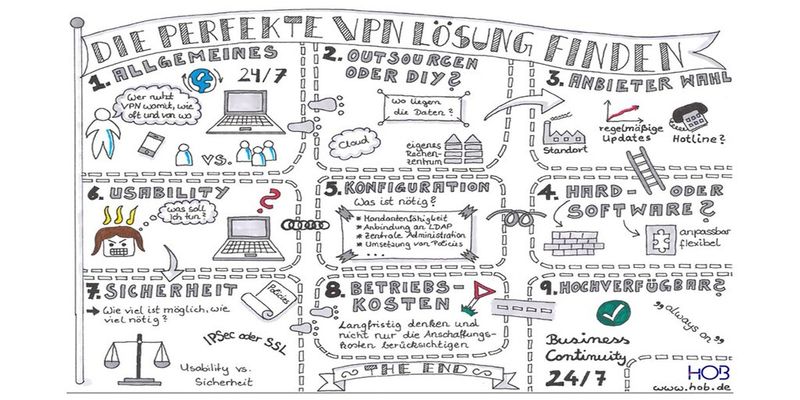 DIE PERFEKTE VPN LÖSUNG FINDEN
1. ALLGEMEINES
24/7
Wer nutzt
VPN womit, wie
oft und von wo
vs.
2. OUTSOURCEN
ODER DIY?
Wo liegen
die Daten?
Cloud
eigenes
Rechen-
zentrum
3. ANBIETER WAHL
Standort
regelmäßige
Updates
Hotline?
6. USABILITY
was soll
ich tun?
?
5. KONFIGURATION
Was ist nötig?
* Mandantenfähigkeit
* Anbindung an LDAP
* Zentrale Administration
* Umsetzung von Policies
* ...
4. HARD- ODER
SOFTWARE?
anpassbar
flexibel
7. SICHERHEIT
Policies
→ Wie viel ist möglich, wie
viel nötig?
IPSec oder SSL
Usability vs.
Sicherheit
8. BETRIEBS-
KOSTEN
Langfristig denken und
nicht nur die Anschaffungs-
kosten berücksichtigen
THE END
9. HOCHVERFÜGBAR?
"always on"
Business
Continuity
24/7
HOB
www.hob.de